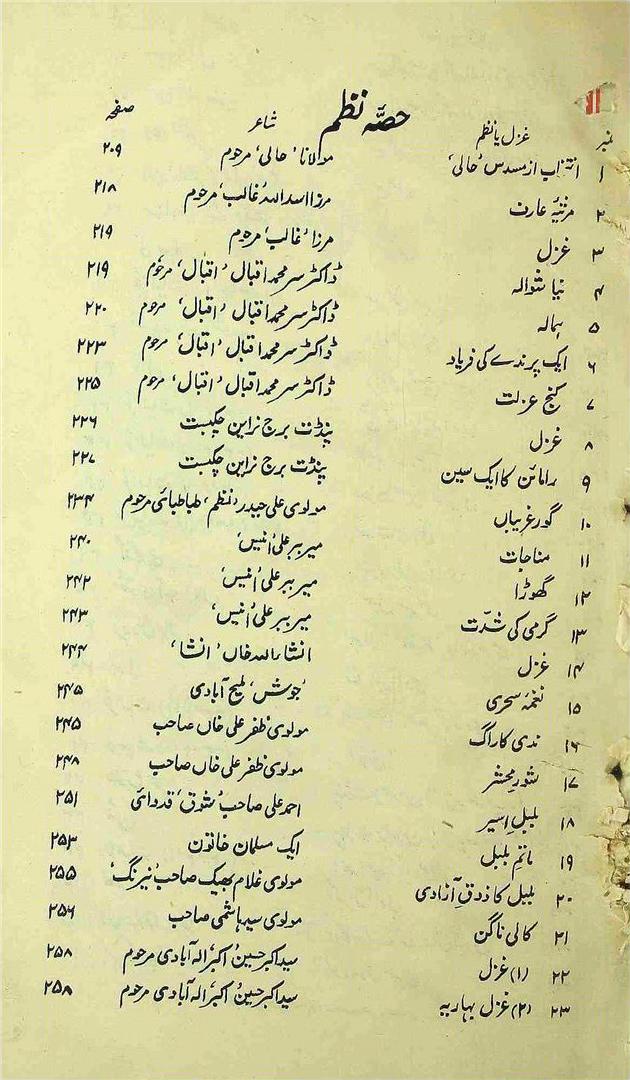 حصّہ نظم
نمبر غزل یا نظم شاعر صفحہ
۱ انتخاب از مسدس ’حالی‘ مولانا ’حالی‘ مرحوم ۲۰۹
۲ مرثیۂ عارف مرزا اسد اللہ ’غالب‘ مرحوم ۲۱۸
۳ غزل مرزا ’غالب‘ مرحوم ۲۱۹
۴ نیا شوالہ ڈاکٹر سر محمد اقبال ’اقبال‘ مرحوم ۲۱۹
۵ ہمالہ ڈاکٹر سر محمد اقبال ’اقبال‘ مرحوم ۲۲۰
۶ ایک پرندے کی فریاد ڈاکٹر سر محمد اقبال ’اقبال‘ مرحوم ۲۲۳
۷ کنج عزلت ڈاکٹر سر محمد اقبال ’اقبال‘ مرحوم ۲۲۵
۸ غزل پنڈت برج نراین چکبست ۲۲۶
۹ رامائن کا ایک سین پنڈت برج نراین چکبست ۲۲۷
۱۰ گور غریباں مولوی علی حیدر ’نظم‘ طباطبائی مرحوم ۲۳۴
۱۱ مناجات میر ببر علی ’انیس‘ ۲۴۰
۱۲ گھوڑا میر ببر علی ’انیس‘ ۲۴۲
۱۳ گرمی کی شدّت میر ببر علی ’انیس‘ ۲۴۳
۱۴ غزل انشاء اللہ خاں ’انشا‘ ۲۴۴
۱۵ نغمۂ سحری ’جوش‘ ملیح آبادی ۲۴۵
۱۶ ندی کا راگ مولوی ظفر علی خاں صاحب ۲۴۵
۱۷ شورِ محشر مولوی ظفر علی خاں صاحب ۲۴۸
۱۸ بلبلِ اسیر احمد علی صاحب ’شوق‘ قدوائی ۲۵۱
۱۹ ماتمِ بلبل ایک مسلمان خاتون ۲۵۳
۲۰ بلبل کا ذوقِ آزادی مولوی غلام بھیک صاحب ’نیرنگ‘ ۲۵۵
۲۱ کالی ناگن مولوی سید ہاشمی صاحب ۲۵۶
۲۲ (۱) غزل سید اکبر حسین ’اکبر‘ الہ آبادی مرحوم ۲۵۸
۲۳ (۲) غزل بہاریہ سید اکبر حسین ’اکبر‘ الہ آبادی مرحوم ۲۵۸